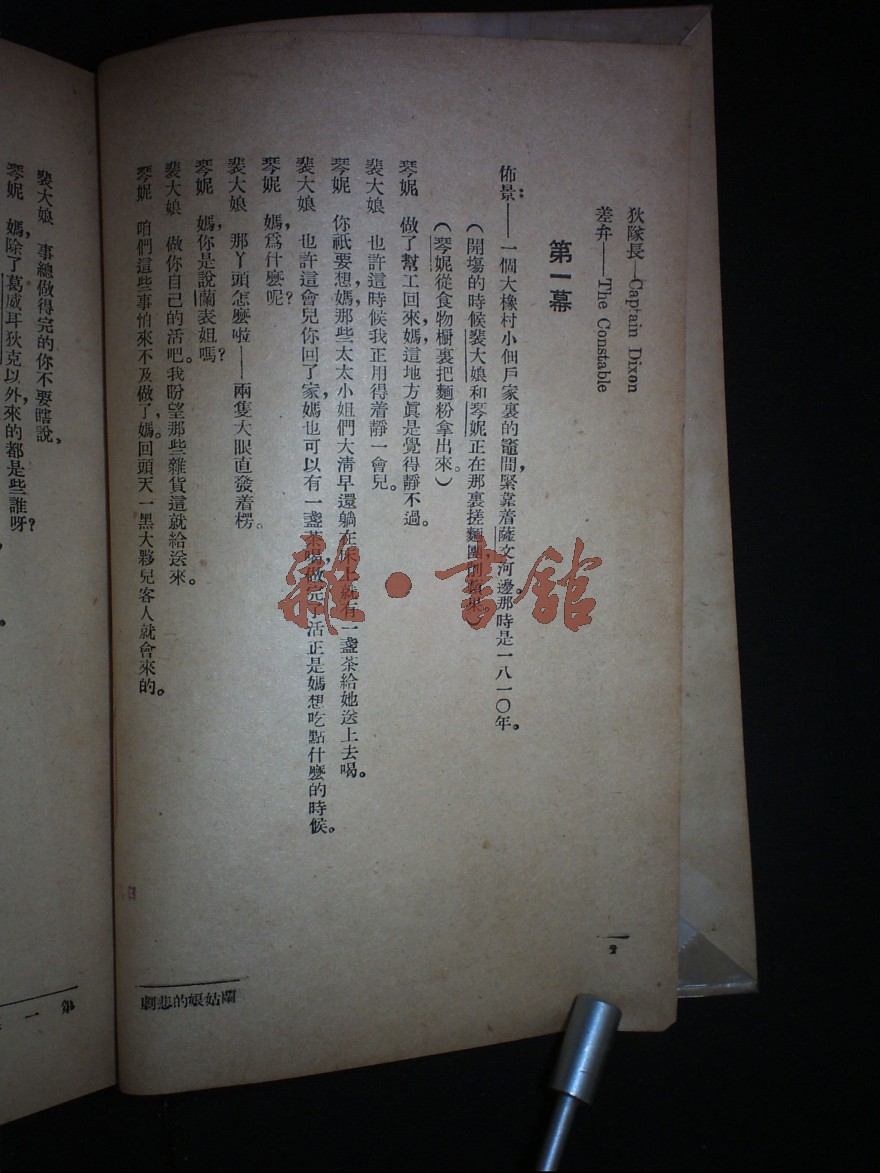 狄隊長——Captain Dixon
差弁——The Constable
第一幕
佈景：——一個大橡村小佃戶家裏的竈間，緊靠着薩文河邊。那時是一八一〇年。
（開塲的時候裴大娘和琴妮正在那裏搓麵團削蘋果。）
（琴妮從食物櫥裏把麵粉拿出來。）
琴妮　做了幫工回來，媽，這地方眞是覺得靜不過。
裴大娘　也許這時候我正用得着靜一會兒。
琴妮　你祇要想，媽，那些太太小姐們大清早還躺在床上就有一盞茶給她送上去喝。
裴大娘　也許這會兒你回了家，媽也可以有一盞茶喝，做完了活正是媽想吃點什麼的時候。
琴妮　媽，爲什麼呢？
裴大娘　那丫頭怎麼啦——兩隻大眼直發着楞。
琴妮　媽，你是說蘭表姐嗎？
裴大娘　做你自己的活吧。我盼望那些雜貨這就給送來。
琴妮　咱們這些事怕來不及做了，媽。回頭天一黑大夥兒客人就會來的。
2
蘭姑娘的悲劇
裴大娘　事總做得完的，你不要瞎說。
琴妮　媽，除了葛威耳狄克以外，來的都是些誰呀？
第一
雜·書館